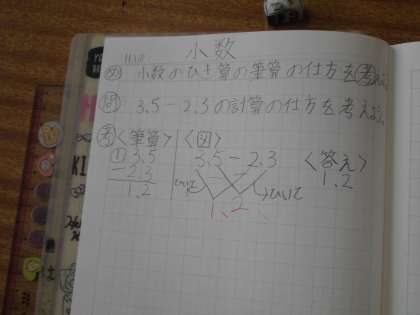 小数
め 小数のひき算の筆算の仕方を考えよう。
問 3.5-2.3の計算の仕方を考えよう。
考 <筆算> <図>
① 3.5
-2.3
1.2
3.5-2.3
ひいて
ひいて
1.2
<答え>
1.2
KI